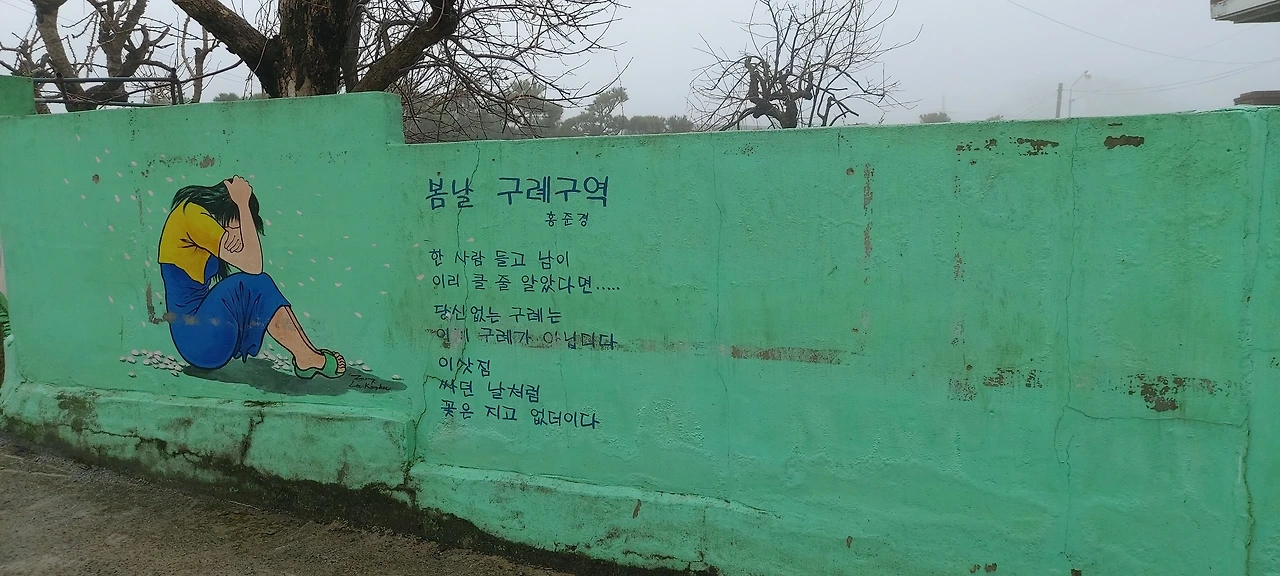 봄날 구례구역
홍준경
한 사람 들고 남이
이리 클 줄 알았다면.....
당신없는 구례는
구례가 아닙디다
이삿짐
싸던 날처럼
꽃은 지고 없더이다